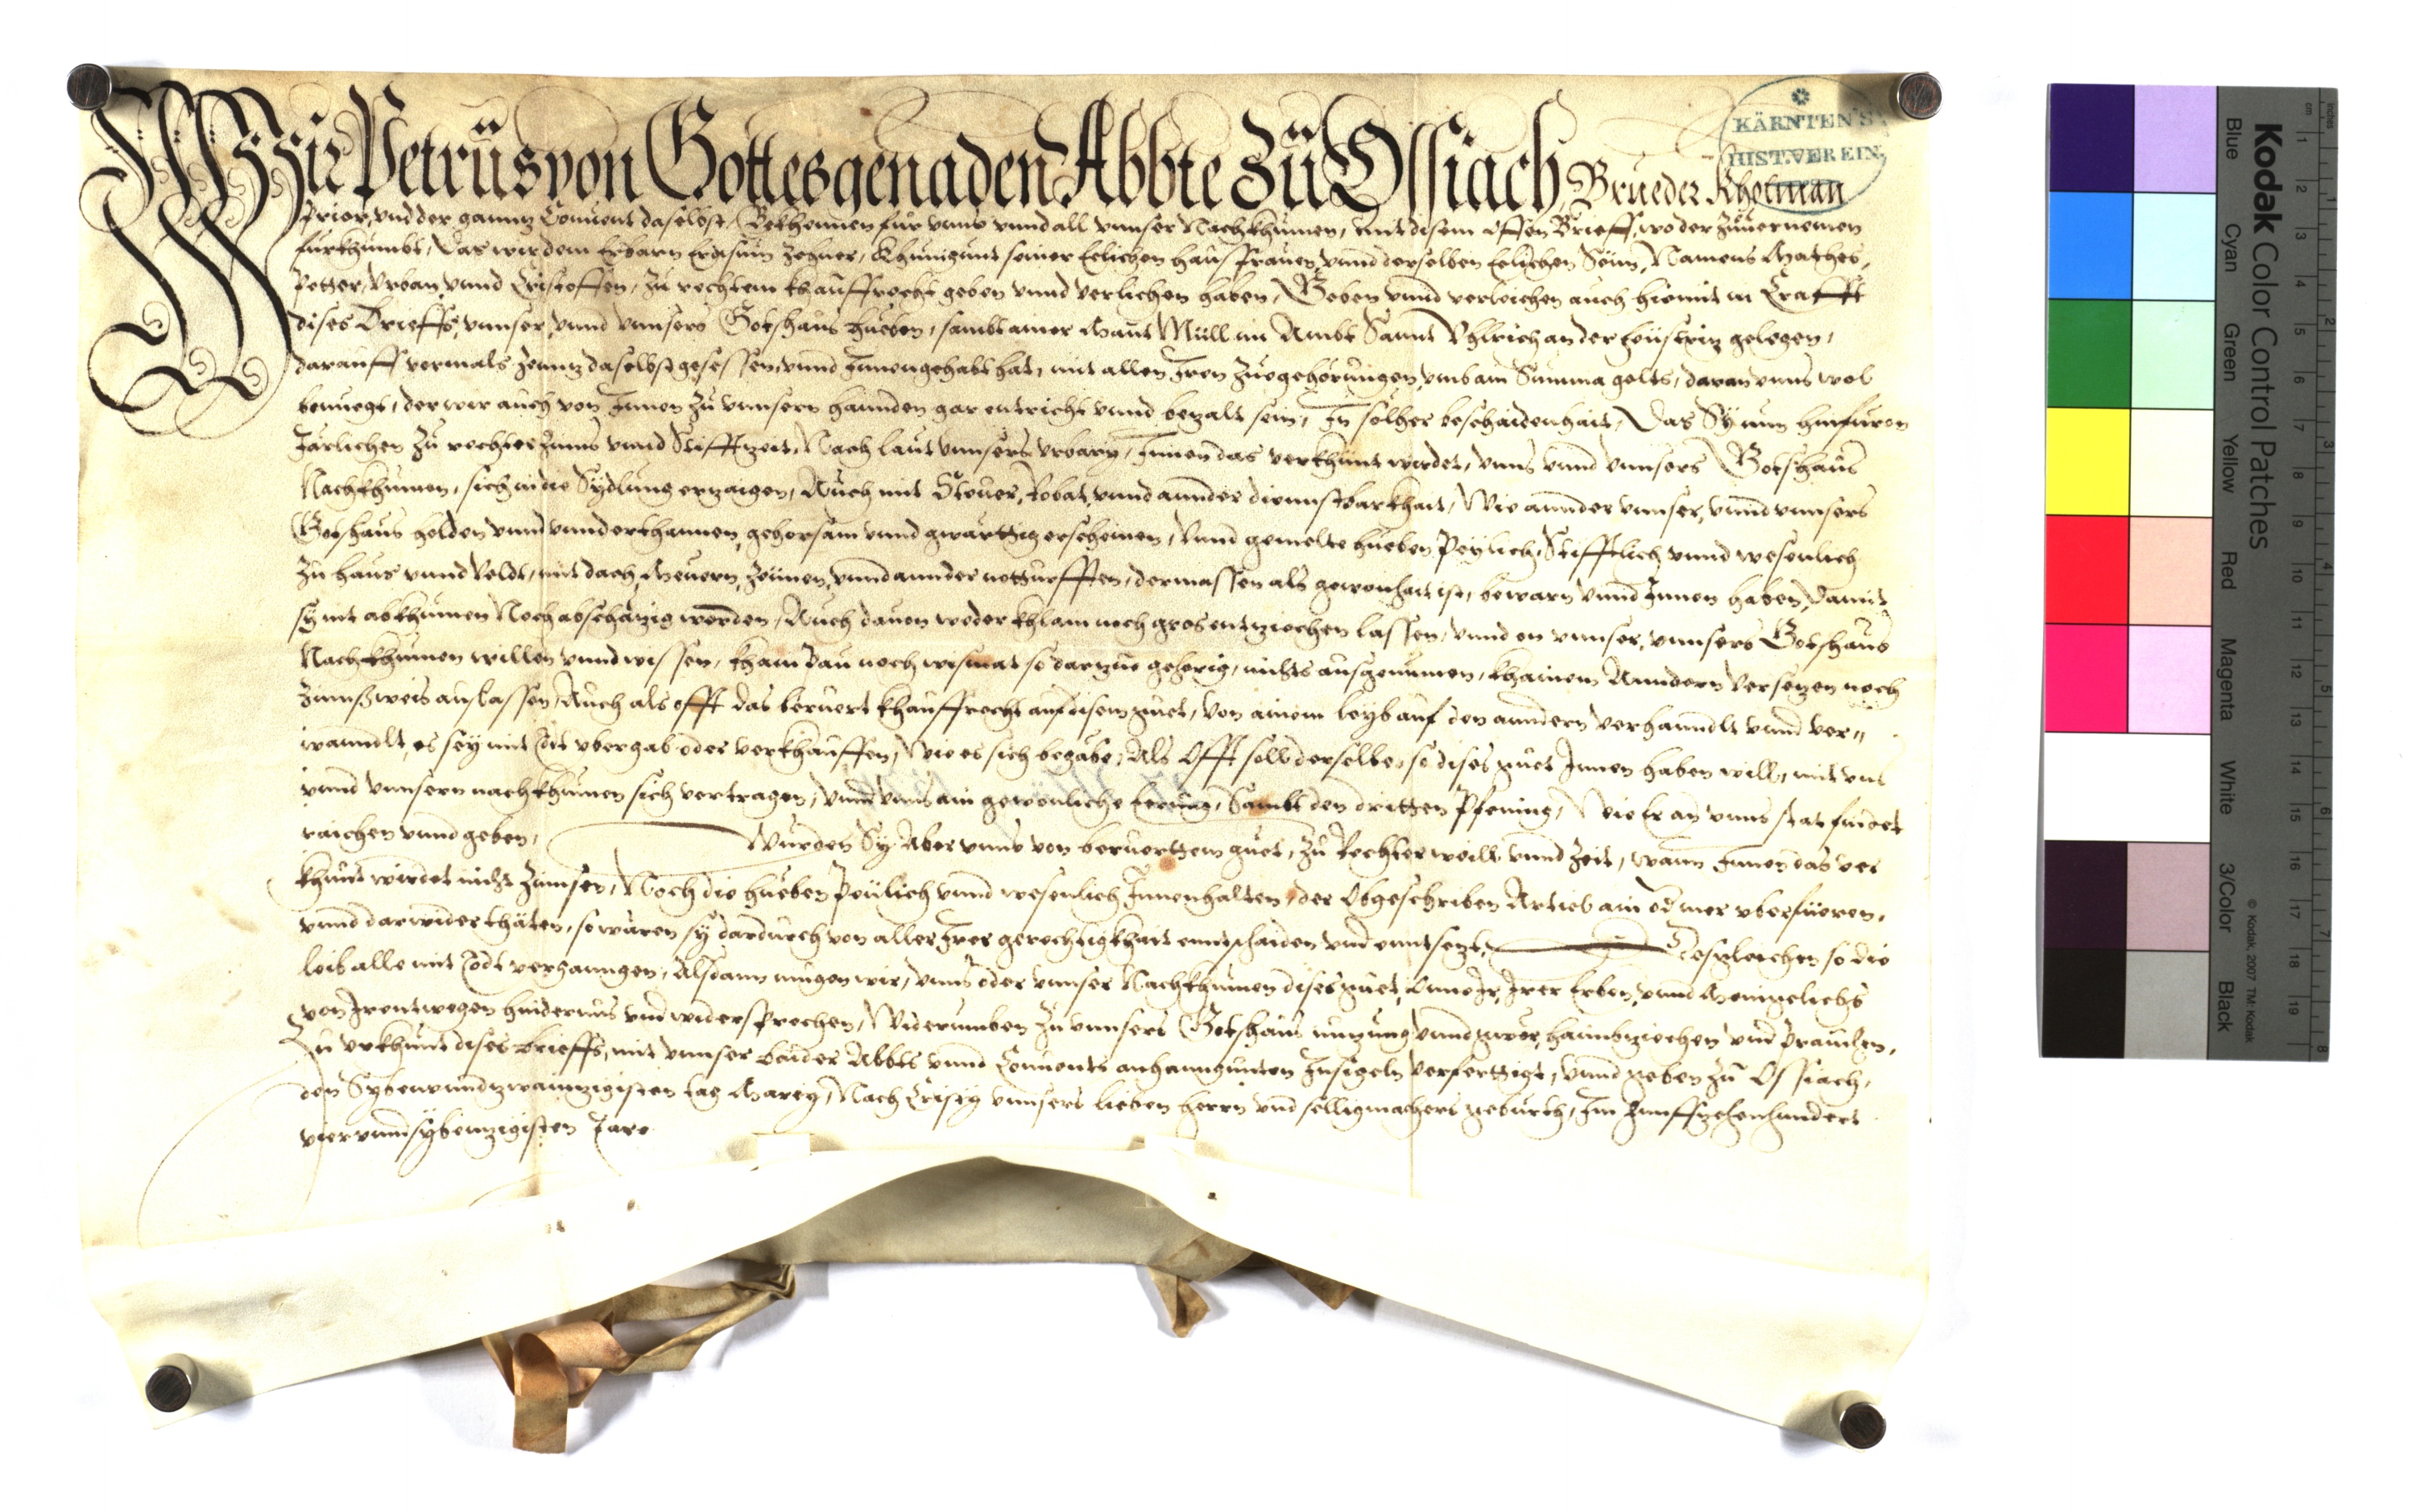 Wir Petrus von Gottes genaden Abbte Zu Ossiach, Brueder Kholman
Prior, vnd der gannz Conuent daselbst, Bekhennen für vnns vnnd all vnnser Nachkhumen, mit disem offen Brieff, wo der Zuuernemen
fürkhumbt, Das wir dem Erbarn Erasm Zehner, Khunigunt seiner Eelichen hausfrauen, vnnd derselben Eelichen Sönn, Namens Mathes,
Petter, Vrban, vnnd Cristoffen, zu rechtem khauffrecht geben vnnd verlichen haben, Geben vnnd verleichen auch hiemit in Crafft
dises Brieffs, vnnser, vnnd vnnsers Gotshaus hueben, sambt ainer Maut Müll im Ambt Sannt Vhlrich an der Feustriz gelegen,
darauff vormals Zennz daselbst gesessen, vnnd Innengehabt hat, mit allen Iren Zuegehörungen, vmb ain Summa gelts, daran vnns wol
benuegt, der wir auch von Innen zu vnnsern hannden gar entricht vnnd bezalt sein, In solher beschaidenhait, Das Sy nun hinfüron
Järlichen zu rechter Zinns vnnd Stifftzeit, Nach laut vnnsers vrbary, Innen das verkhünt wirdet, vnns vnnd vnnsers Gotshaus
Nachkhumen, sich in die Sydlung erzaigen, Auch mit Steuer, Robat, vnnd annder diennstbarkhait, Wie annder vnnser, vnnd vnnsers
Gotshaus holden vnnd vnnderthannen, gehorsam vnnd gwärttig erscheinen, Vnnd gemelte hueben Peylich, Stifftlich vnnd wesenlich
zu haus vnnd Veldt, mit dach, Meuern, Zeünen, vnnd annder notturfften, dermassen als gewonhait ist, bewarn vnnd Innen haben, Damit
sy nit abkhumen Noch abschäzig werden, Auch dauon weder khlain noch gros entziechen lassen, vnnd on vnnser, vnnsers Gotshaus
Nachkhumen willen vnnd wissen, kham Pau noch wismat so darzue gehörig, nichts ausgenumen, khainem Anndern versezen noch
Zinnßweis auslassen, Auch als offt das beruert khauffrecht auf disem guet, von ainem leyb auf den anndern verhanndlt vnnd ver=
wanndlt, es sey mit Tot vbergab oder verkhauffen, Wie es sich begäbe, Als Offt soll derselbe, so dises guet Innen haben will, mit vnns
vnnd vnnsern nachkhumen sich vertragen, vnnd vnns ain gewonliche Eerung, Sambt den dritten Pfening, Wie Er an vnns stat findet
raichen vnnd geben, Wurden Sy Aber vnns von beruertem guet, zu Rechter weill vnnd Zeit, wann Innen das ver
khünt wirdet nicht Zinnsen, Noch die hueben Peulich vnnd wesenlich Innenhalten, der Obgeschriben Articl ain od mer vberfüeren,
vnnd darwider thäten, so wären sy dardurch von aller Irer gerechtigkhait enntschaiden vnd enntsezt, Desgleichen so die
leib alle mit Todt verganngen, Alsdann mugen wir, vnns oder vnnser Nachkhumen dises guet, Anne Ir, Irer Erben, vnnd Menigelichs
von Irentwegen hindernus vnd widersprechen, Widerumben zu vnnsers Gotshaus nuzung vnnd gwer, haimbziechen vnd prauchen,
Zu vrkhünt dises brieffs, mit vnnser beider Abbts vnnd Conuents anhanngunten Insigeln verfertigt, vnnd geben zu Ossiach,
den Sybenvndzwainzigisten tag Marcy, Nach Cristy vnnsers lieben herrn vnd selligmachers geburth, Im Funffzehenhundert
viervnndsybenzigisten Jare
KÄRNTEN'S
HIST.VEREIN
Kodak Color Control Patches
Blue Cyan Green Yellow Red Magenta White 3/Color Black
© Kodak, 2007 TM: Kodak
cm 1 2 3 4 5 6 7 8 9 10 11 12 13 14 15 16 17 18 19
inches 1 2 3 4 5 6 7 8